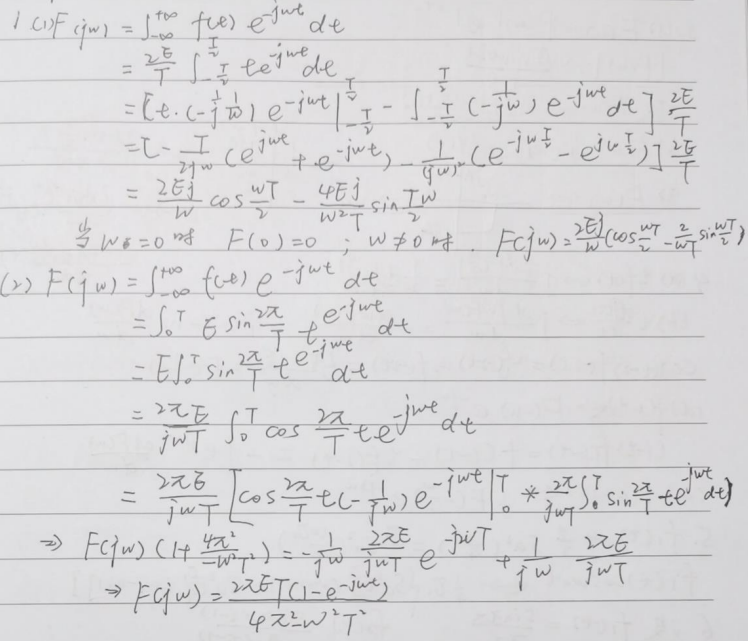 1 (1) F(jw) = ∫_{-∞}^{+∞} f(t) e^{-jwt} dt
= \frac{2E}{T} ∫_{-\frac{T}{2}}^{\frac{T}{2}} t e^{-jwt} dt
= [t·(-\frac{1}{j}\frac{1}{w}) e^{-jwt} |_{-\frac{T}{2}}^{\frac{T}{2}} - ∫_{-\frac{T}{2}}^{\frac{T}{2}} (-\frac{1}{jw}) e^{-jwt} dt] \frac{2E}{T}
= [-\frac{T}{2jw} (e^{jwt} + e^{-jwt}) - \frac{1}{(jw)^2} (e^{-jw\frac{T}{2}} - e^{jw\frac{T}{2}})] \frac{2E}{T}
= \frac{2Ej}{w} cos\frac{wT}{2} - \frac{4Ej}{w^2T} sin\frac{Tw}{2}
当 w=0时 F(0)=0 ; w≠0时. F(jw) = \frac{2Ej}{w}(cos\frac{wT}{2} - \frac{2}{wT} sin\frac{wT}{2})
(2) F(jw) = ∫_{-∞}^{+∞} f(t) e^{-jwt} dt
= ∫_0^T E sin\frac{2π}{T} t e^{-jwt} dt
= E∫_0^T sin\frac{2π}{T} t e^{-jwt} dt
= \frac{2πE}{jwT} ∫_0^T cos\frac{2π}{T} t e^{-jwt} dt
= \frac{2πE}{jwT} [cos\frac{2π}{T} t (-\frac{1}{jw}) e^{-jwt} |_0^T * \frac{2π}{jwT} ∫_0^T sin\frac{2π}{T} t e^{-jwt} dt]
⇒ F(jw) (1+\frac{4π^2}{-w^2T^2}) = -\frac{1}{jw} \frac{2πE}{jwT} e^{-jwT} + \frac{1}{jw} \frac{2πE}{jwT}
⇒ F(jw) = \frac{2πET(1-e^{-jwt})}{4π^2-w^2T^2}